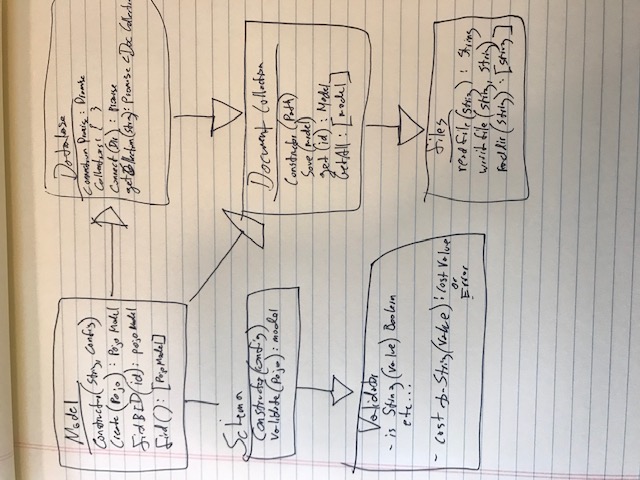 Model
Constructor(String, Config)
Create (Pojo): Pojo Model
findById(id): pojo Model
find(): [Pojo Model]
Database
Connection Promise: Promise
Collections: { }
Connect (Dir): Promise
get Collection (String): Promise <Doc Collection
Schema
Constructor (config)
Validate (Pojo): model
Document Collection
Constructor (Path)
Save (model)
get (id): Model
GetAll: [model]
Validator
- is String (value) Boolean
etc...
- cast to-String (value): cast value
or
Error
files
readfile (string): String
writefile (string, String)
readdir (string): [string]